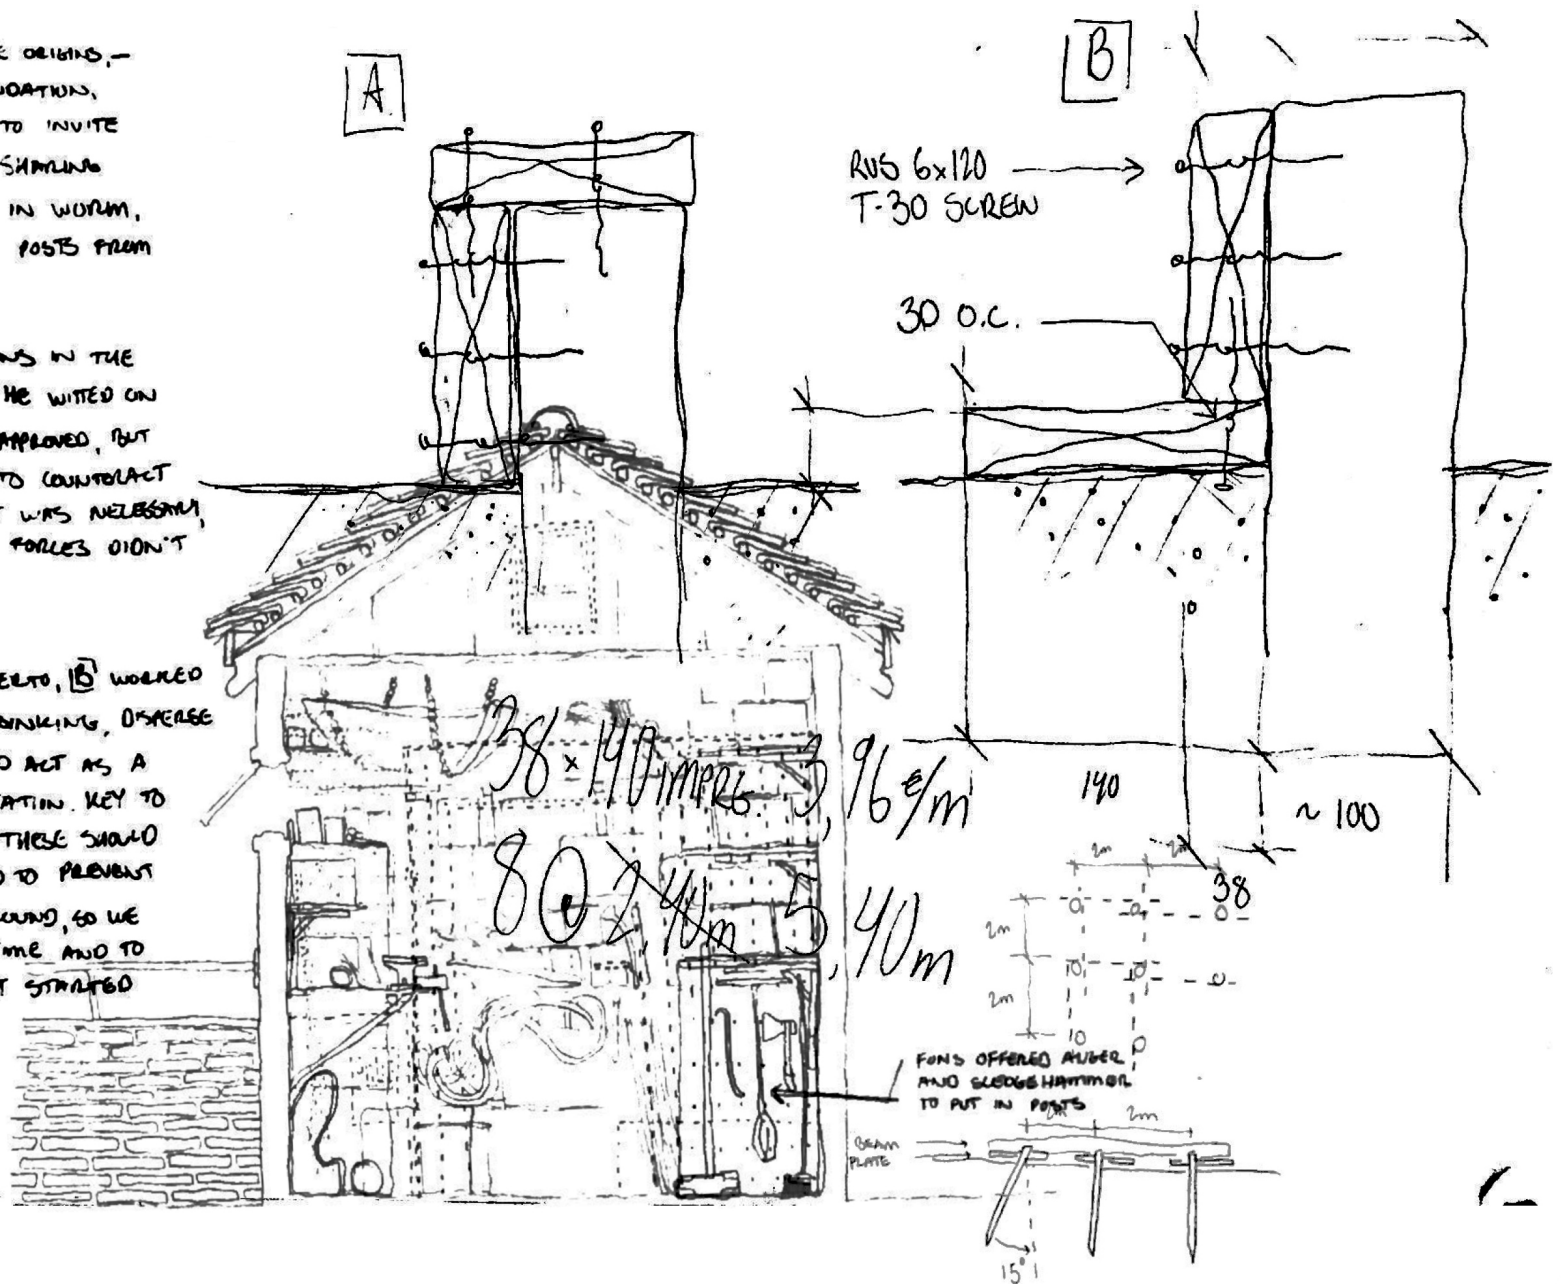 ORIGINS,—
TO INVITE
SHARING
IN WORM,
POSTS FROM
IN THE
HE WITTED ON
APPROVED, BUT
TO COUNTERACT
WAS NECESSARY,
FORCES DIDN'T
B WORKED
SINKING, DISPERSE
ACT AS A
KEY TO
THESE SHOULD
TO PREVENT
SO WE
TIME AND TO
STARTED
A
B
RVS 6x120
T-30 SCREW
30 O.C.
38 x 140 IMPRG. 3,96 €/m
8 @ 2,40m 5,40m
140
~ 100
38
2m 2m
2m
2m
FONS OFFERED AUGER
AND SLEDGEHAMMER
TO PUT IN POSTS
2m 2m
BEAM
PLATE
15°